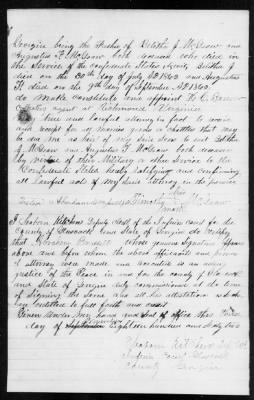 Georgia being the Father of Elbitha J. McGraw and
Augustus F. McGraw both deceased who died in
the service of the Confederate States Army Elbitha J
died on the 30th day of July AD 1862 and Augustus
F. died on the 9th day of September AD 1862.
do make constitute and appoint
agent of Richmond Virginia
true and lawful attorney in fact to
and receipt for any moneys goods or chattles that may
be due me as heir of my said sons to wit Elbitha
J. McGraw and Augustus F. McGraw both deceased
by virtue of their Military or other Service to the
Confederate States hereby ratifying and confirming
all lawful acts of my said attorney in the premises
his
Timothy McGraw
mark
I Seaborn Kitchens Deputy Clerk of the Inferior Court for the
County of Glascock and State of Georgia do Certify
that whose genuine signature appears
above and before whom the above affidavits and power
of attorney were made and executed is an acting
Justice of the Peace in and for the county of Glascock
and State of Georgia duly commissioned at the time
of Signing the Same and all his attestations as such
are entitled to full faith and credit
Given under my hand and seal of office this
day of Eighteen hundred and sixty two
Seaborn Kitchens
Inferior Court Glascock
County Georgia